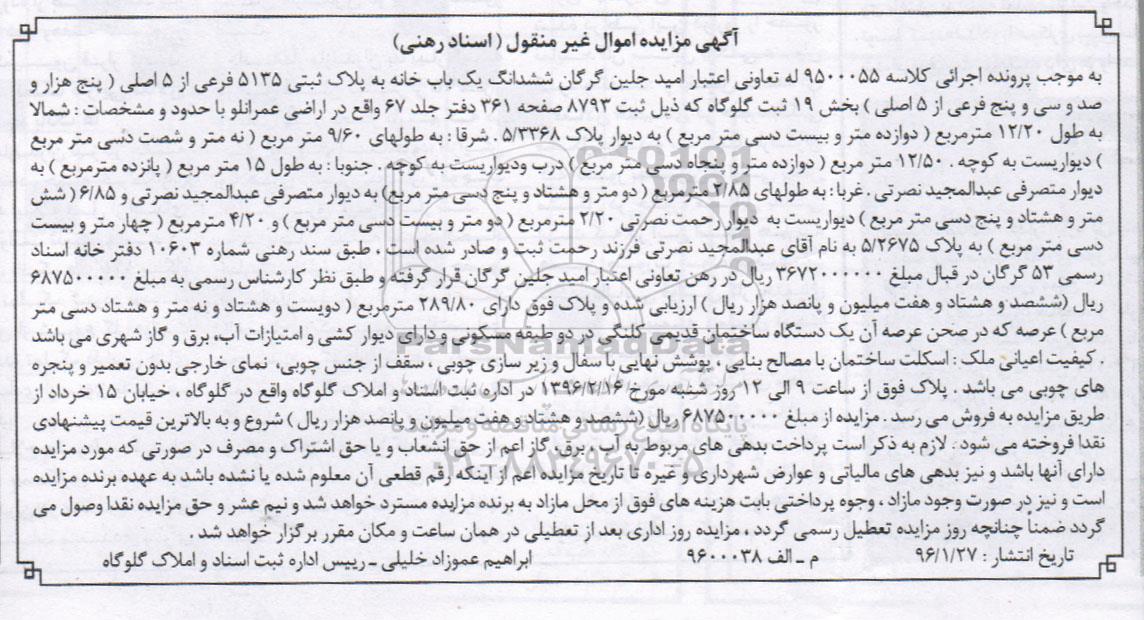 آگهی مزایده اموال غیر منقول (اسناد رهنی)
به موجب پرونده اجرائی کلاسه ۹۵۰۰۰۵۵ له تعاونی اعتبار امید جلین گرگان ششدانگ یک باب خانه به پلاک ثبتی ۵۱۳۵ فرعی از ۵ اصلی (پنج هزار و
صد و سی و پنج فرعی از ۵ اصلی) بخش ۱۹ ثبت گلوگاه که ذیل ثبت ۸۷۹۳ صفحه ۳۶۱ دفتر جلد ۶۷ واقع در اراضی عمرانلو با حدود و مشخصات : شمالا
به طول ۱۲/۲۰ مترمربع (دوازده متر و بیست دسی متر مربع) به دیوار پلاک ۵/۳۳۶۸ . شرقا : به طولهای ۹/۶۰ متر مربع (نه متر و شصت دسی متر مربع
) دیواریست به کوچه . ۱۲/۵۰ متر مربع (دوازده متر و پنجاه دسی متر مربع) درب ودیواریست به کوچه . جنوبا : به طول ۱۵ متر مربع (پانزده مترمربع) به
دیوار متصرفی عبدالمجید نصرتی . غربا : به طولهای ۲/۸۵ مترمربع (دو متر و هشتاد و پنج دسی متر مربع) به دیوار متصرفی عبدالمجید نصرتی و ۶/۸۵ (شش
متر و هشتاد و پنج دسی متر مربع) دیواریست به دیوار رحمت نصرتی ۲/۲۰ مترمربع (دو متر و بیست دسی متر مربع) و ۴/۲۰ مترمربع (چهار متر و بیست
دسی متر مربع) به پلاک ۵/۲۶۷۵ به نام آقای عبدالمجید نصرتی فرزند رحمت ثبت و صادر شده است ، طبق سند رهنی شماره ۱۰۶۰۳ دفتر خانه اسناد
رسمی ۵۳ گرگان در قبال مبلغ ۳۶۷۲۰۰۰۰۰۰ ریال در رهن تعاونی اعتبار امید جلین گرگان قرار گرفته و طبق نظر کارشناس رسمی به مبلغ ۶۸۷۵۰۰۰۰۰
ریال (ششصد و هشتاد و هفت میلیون و پانصد هزار ریال) ارزیابی شده و پلاک فوق دارای ۲۸۹/۸۰ مترمربع (دویست و هشتاد و نه متر و هشتاد دسی متر
مربع) عرصه که در صحن عرصه آن یک دستگاه ساختمان قدیمی کلنگی در دو طبقه مسکونی و دارای دیوار کشی و امتیازات آب، برق و گاز شهری می باشد
. کیفیت اعیانی ملک : اسکلت ساختمان با مصالح بنایی ، پوشش نهایی ، سفال و زیر سازی چوبی ، سقف از جنس چوبی، نمای خارجی بدون تعمیر و پنجره
های چوبی می باشد . پلاک فوق از ساعت ۹ الی ۱۲ روز شنبه مورخ ۱۳۹۶/۲/۱۶ در اداره ثبت اسناد و املاک گلوگاه واقع در گلوگاه ، خیابان ۱۵ خرداد از
طریق مزایده به فروش می رسد . مزایده از مبلغ ۶۸۷۵۰۰۰۰۰ ریال (ششصد و هشتاد و هفت میلیون و پانصد هزار ریال) شروع و به بالاترین قیمت پیشنهادی
نقدا فروخته می شود . لازم به ذکر است پرداخت بدهی های مربوط به آب ، برق ، گاز اعم از حق انشعاب و یا حق اشتراک و مصرف در صورتی که مورد مزایده
دارای آنها باشد و نیز بدهی های مالیاتی و عوارض شهرداری و غیره تا تاریخ مزایده اعم از اینکه رقم قطعی آن معلوم شده یا نشده باشد به عهده برنده مزایده
است و نیز در صورت وجود مازاد ، وجوه پرداختی بابت هزینه های فوق از محل مازاد به برنده مزایده مسترد خواهد شد و نیم عشر و حق مزایده نقدا وصول می
گردد ضمناً چنانچه روز مزایده تعطیل رسمی گردد ، مزایده روز اداری بعد از تعطیلی در همان ساعت و مکان مقرر برگزار خواهد شد .
تاریخ انتشار : ۹۶/۱/۲۷ م ـ الف ۹۶۰۰۰۳۸ ابراهیم عموزاد خلیلی ـ رییس اداره ثبت اسناد و املاک گلوگاه
ParsNamadData
پایگاه اطلاع رسانی مناقصه و مزایده
۰۲۱-۸۸۳۴۹۶۷۰-۵